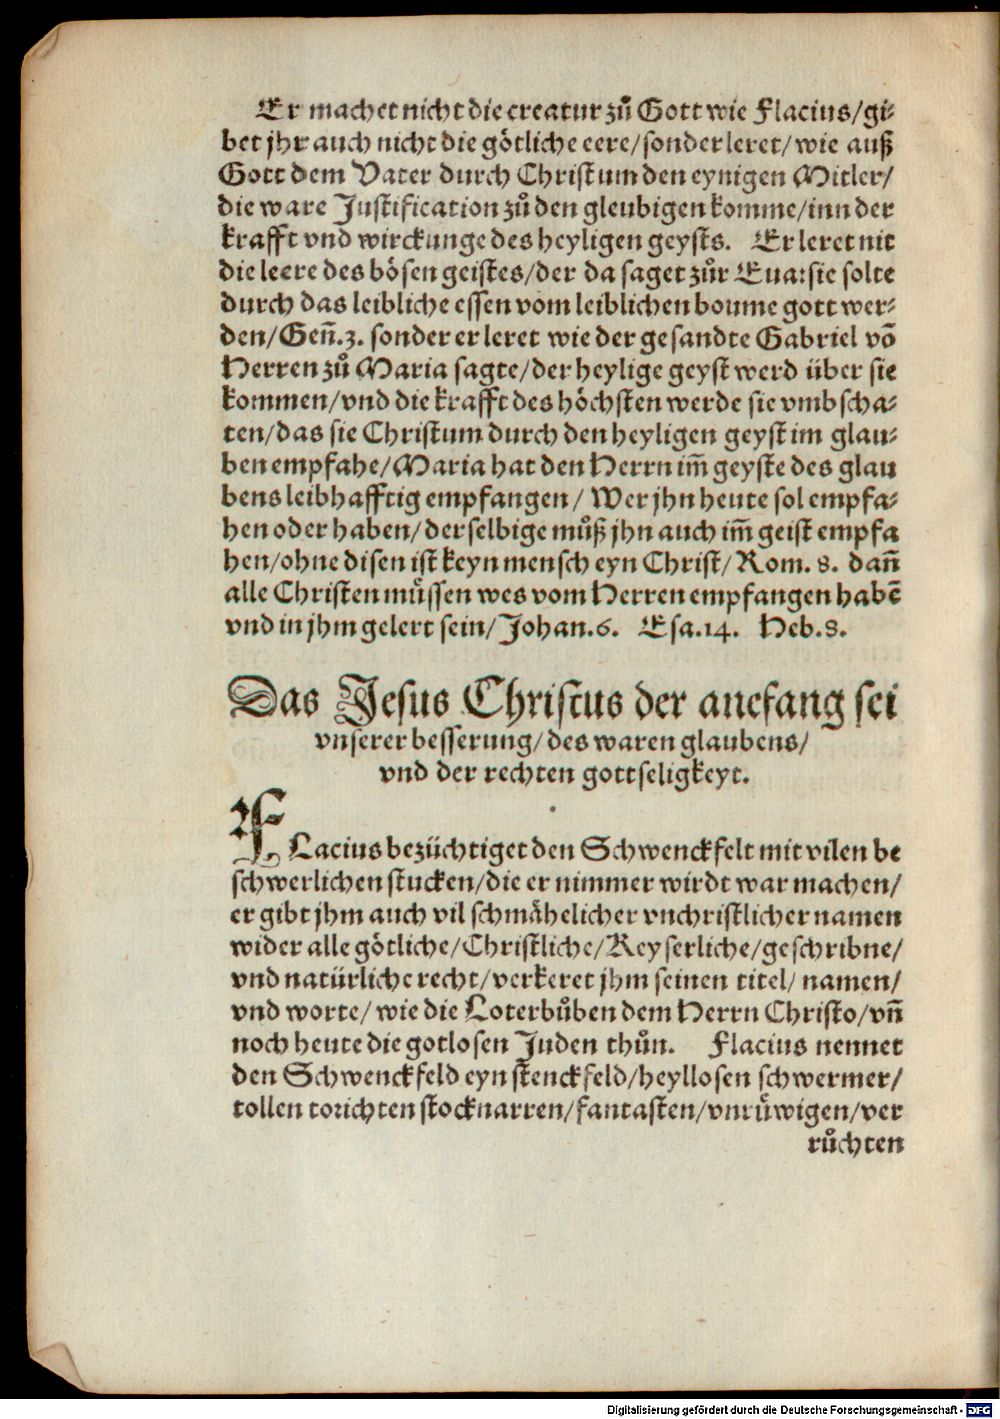 Er machet nicht die creatur zů Gott wie Flacius/gi-
bet jhr auch nicht die götliche eere/sonder leret/wie auß
Gott dem Vater durch Christum den eynigen Mitler/
die ware Justification zů den gleubigen komme/inn der
krafft vnd wirckunge des heyligen geysts. Er leret nit
die leere des bösen geistes/der da saget zůr Eua:sie solte
durch das leibliche essen vom leiblichen boume gott wer-
den/Geñ.3. sonder er leret wie der gesandte Gabriel võ
Herren zů Maria sagte/der heylige geyst werd über sie
kommen/vnd die krafft des höchsten werde sie vmbscha-
ten/das sie Christum durch den heyligen geyst im glau-
ben empfahe/Maria hat den Herrn im̃ geyste des glau
bens leibhafftig empfangen/ Wer jhn heute sol empfa-
hen oder haben/derselbige můß jhn auch im̃ geist empfa
hen/ohne disen ist keyn mensch eyn Christ/Rom. 8. dañ
alle Christen müssen wes vom Herren empfangen habẽ
vnd in jhm gelert sein/Johan.6. Esa.14. Heb.8.
Das Jesus Christus der anefang sei
vnserer besserung/des waren glaubens/
vnd der rechten gottseligkeyt.
FLacius bezüchtiget den Schwenckfelt mit vilen be
schwerlichen stucken/die er nimmer wirdt war machen/
er gibt jhm auch vil schmähelicher vnchristlicher namen
wider alle götliche/Christliche/Keyserliche/geschribne/
vnd natürliche recht/verkeret jhm seinen titel/namen/
vnd worte/wie die Loterbůben dem Herrn Christo/vñ
noch heute die gotlosen Juden thůn. Flacius nennet
den Schwenckfeld eyn stenckfeld/heyllosen schwermer/
tollen torichten stocknarren/fantasten/vnrüwigen/ver
růchten
Digitalisierung gefördert durch die Deutsche Forschungsgemeinschaft - DFG